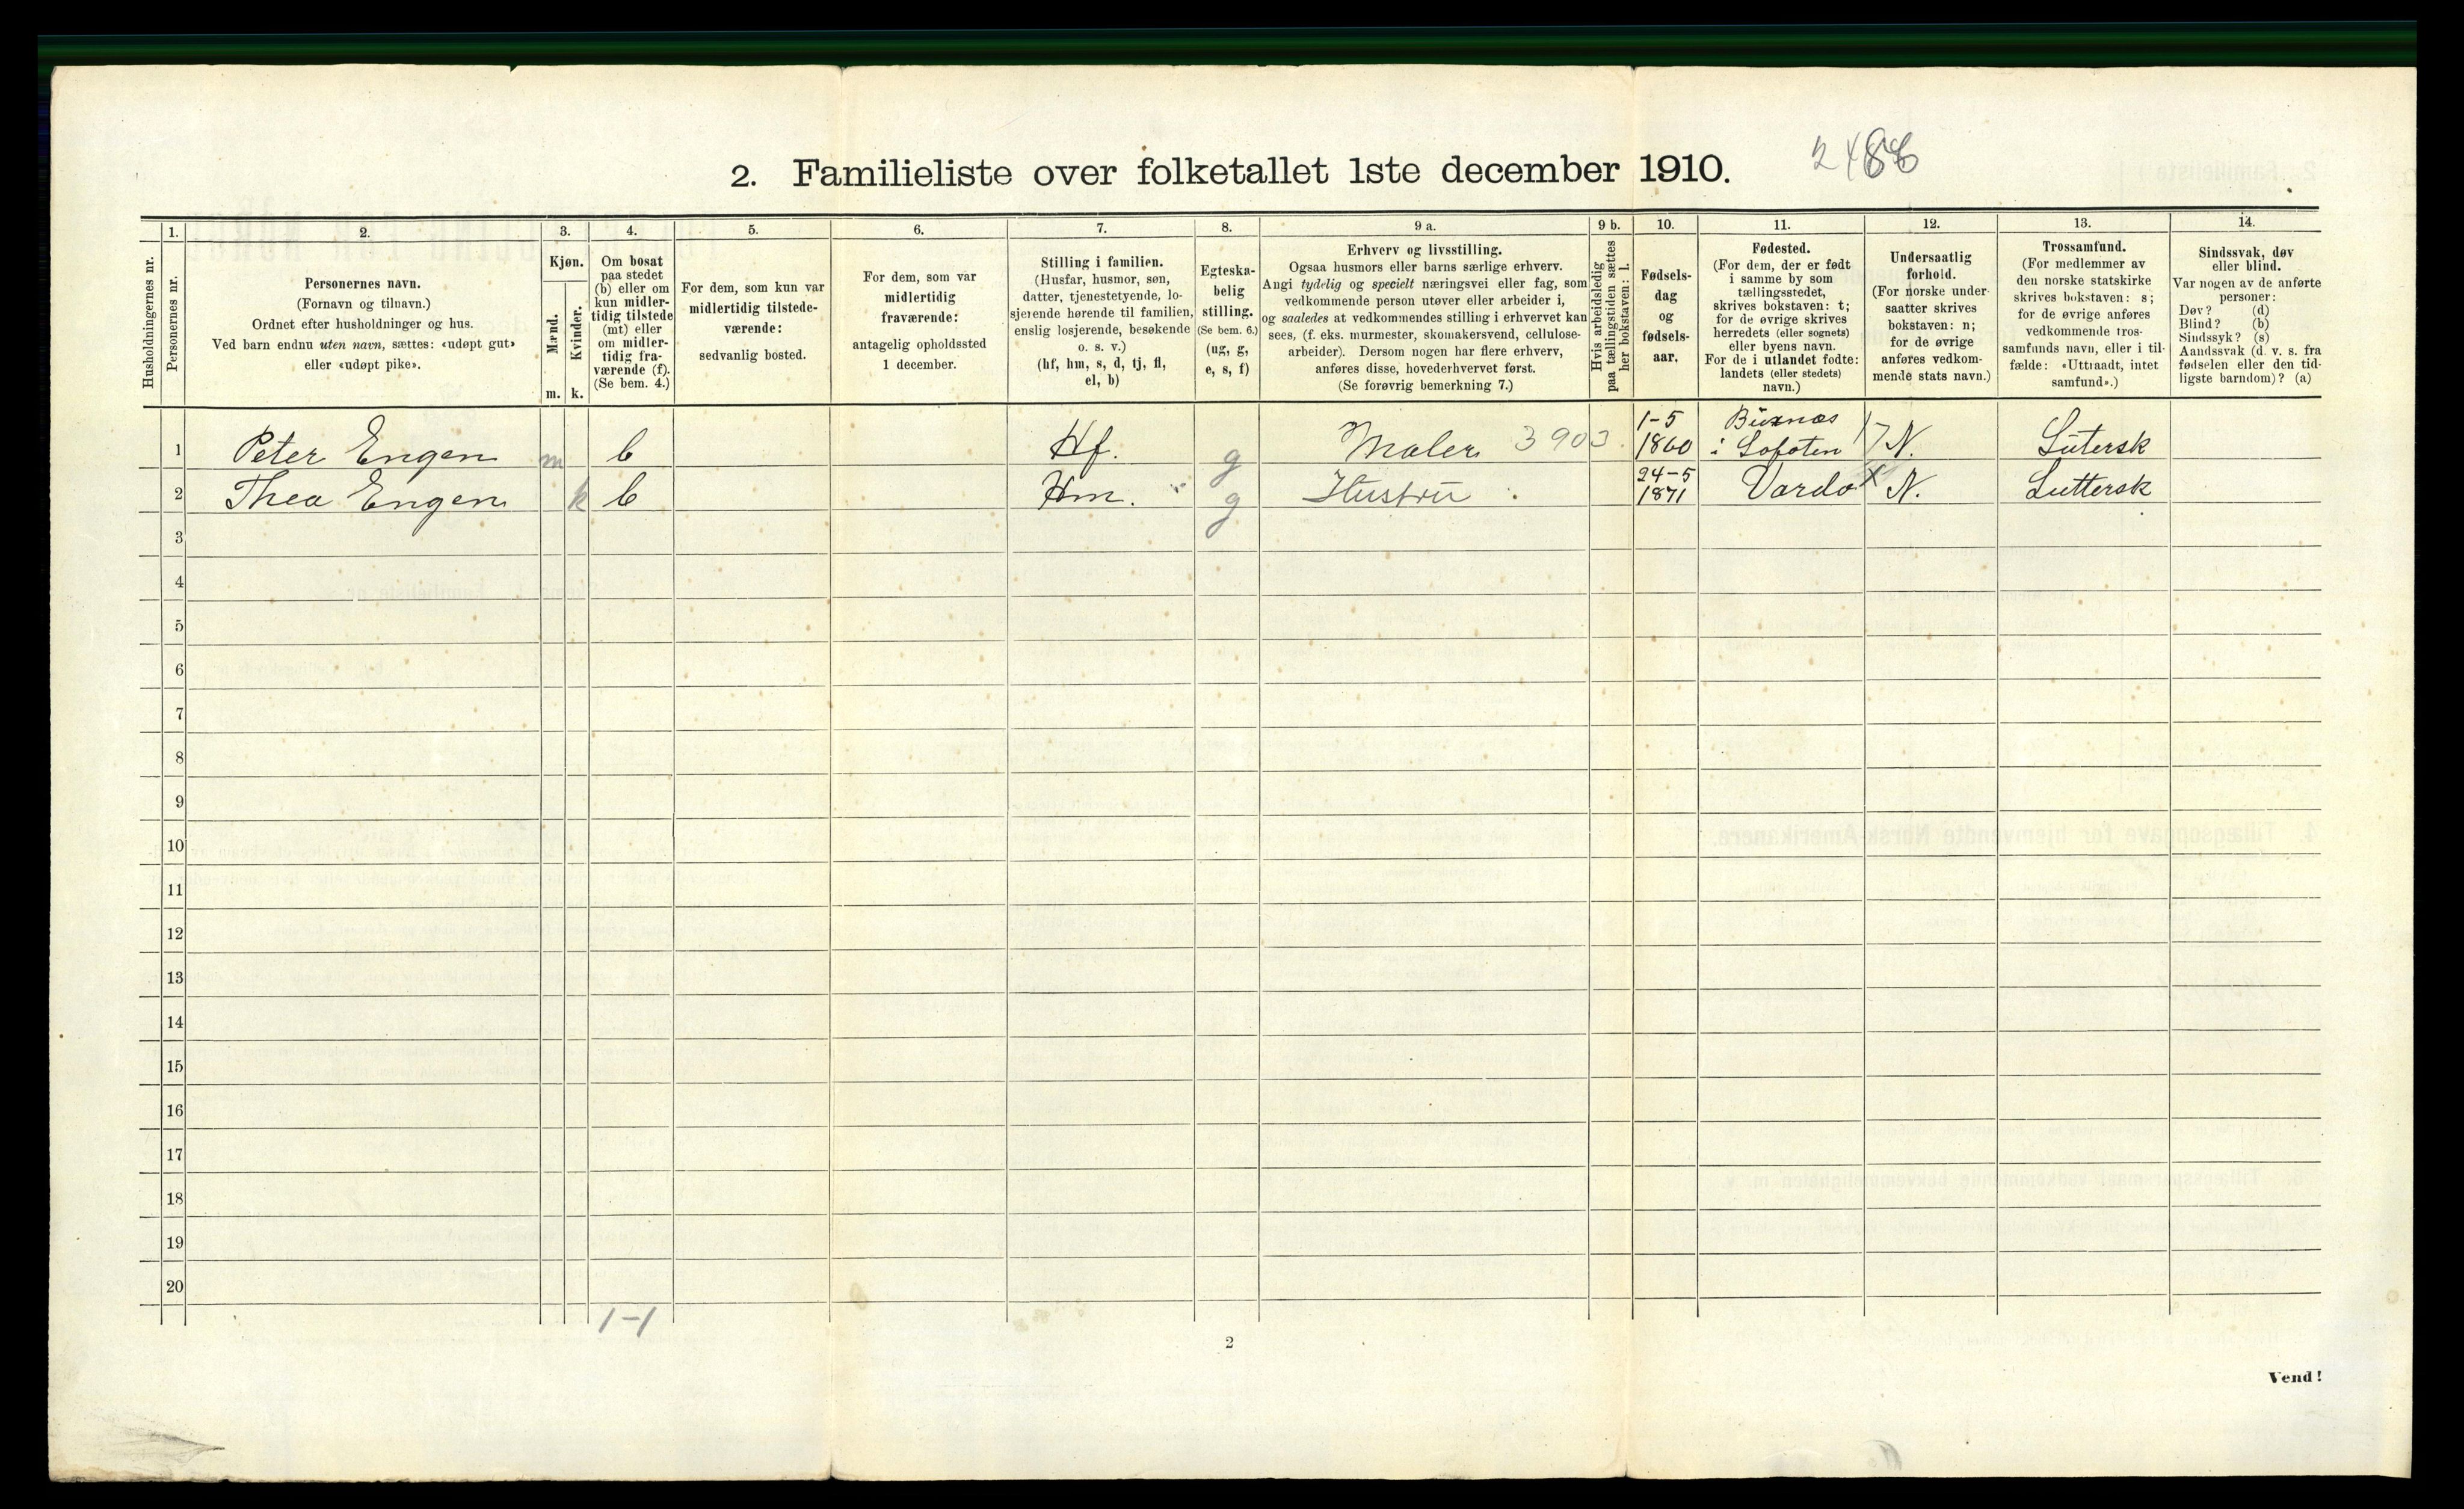 2. Familieliste over folketallet 1ste december 1910.
Husholdningernes nr.
1.
Personernes nr.
2.
Personernes navn.
(Fornavn og tilnavn.)
Ordnet efter husholdninger og hus.
Ved barn endnu uten navn, sættes: «udøpt gut»
eller «udøpt pike».
3.
Kjøn.
Mænd.
Kvinder.
m. k.
4.
Om bosat
paa stedet
(b) eller om
kun midler-
tidig tilstede
(mt) eller
om midler-
tidig fra-
værende (f).
(Se bem. 4.)
5.
For dem, som kun var
midlertidig tilstede-
værende:
sedvanlig bosted.
6.
For dem, som var
midlertidig
fraværende:
antagelig opholdssted
1 december.
7.
Stilling i familien.
(Husfar, husmor, søn,
datter, tjenestetyende, lo-
sjerende hørende til familien,
enslig losjerende, besøkende
o. s. v.)
(hf, hm, s, d, tj, fl,
el, b)
8.
Egteska-
belig
stilling.
(Se bem. 6.)
(ug, g,
e, s, f)
9 a.
Erhverv og livsstilling.
Ogsaa husmors eller barns særlige erhverv.
Angi tydelig og specielt næringsvei eller fag, som
vedkommende person utøver eller arbeider i,
og saaledes at vedkommendes stilling i erhvervet kan
sees, (f. eks. murmester, skomakersvend, cellulose-
arbeider). Dersom nogen har flere erhverv,
anføres disse, hovederhvervet først.
(Se forøvrig bemerkning 7.)
9 b.
Hvis arbeidsledig
paa tællingstiden sættes
her bokstaven: l.
10.
Fødsels-
dag
og
fødsels-
aar.
11.
Fødested.
(For dem, der er født
i samme by som
tællingsstedet,
skrives bokstaven: t;
for de øvrige skrives
herredets (eller sognets)
eller byens navn.
For de i utlandet fødte:
landets (eller stedets)
navn.)
12.
Undersaatlig
forhold.
(For norske under-
saatter skrives
bokstaven: n;
for de øvrige
anføres vedkom-
mende stats navn.)
13.
Trossamfund.
(For medlemmer av
den norske statskirke
skrives bokstaven: s;
for de øvrige anføres
vedkommende tros-
samfunds navn, eller i til-
fælde: «Uttraadt, intet
samfund».)
14.
Sindssvak, døv
eller blind.
Var nogen av de anførte
personer:
Døv? (d)
Blind? (b)
Sindssyk? (s)
Aandssvak (d. v. s. fra
fødselen eller den tid-
ligste barndom)? (a)
1 Peter Engen m b Hf. g Maler 3903. 1-5 1860 i Lofoten 17 N. Lutersk
2 Thea Engen k b Hm. g Hustru . 24-5 1871 Vardo x N. Luttersk
3
4
5
6
7
8
9
10
11
12
13
14
15
16
17
18
19
20
1-1
2
Vend!